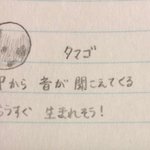 タマゴ
中から 音が 聞こえてくる
もうすぐ 生まれそう!